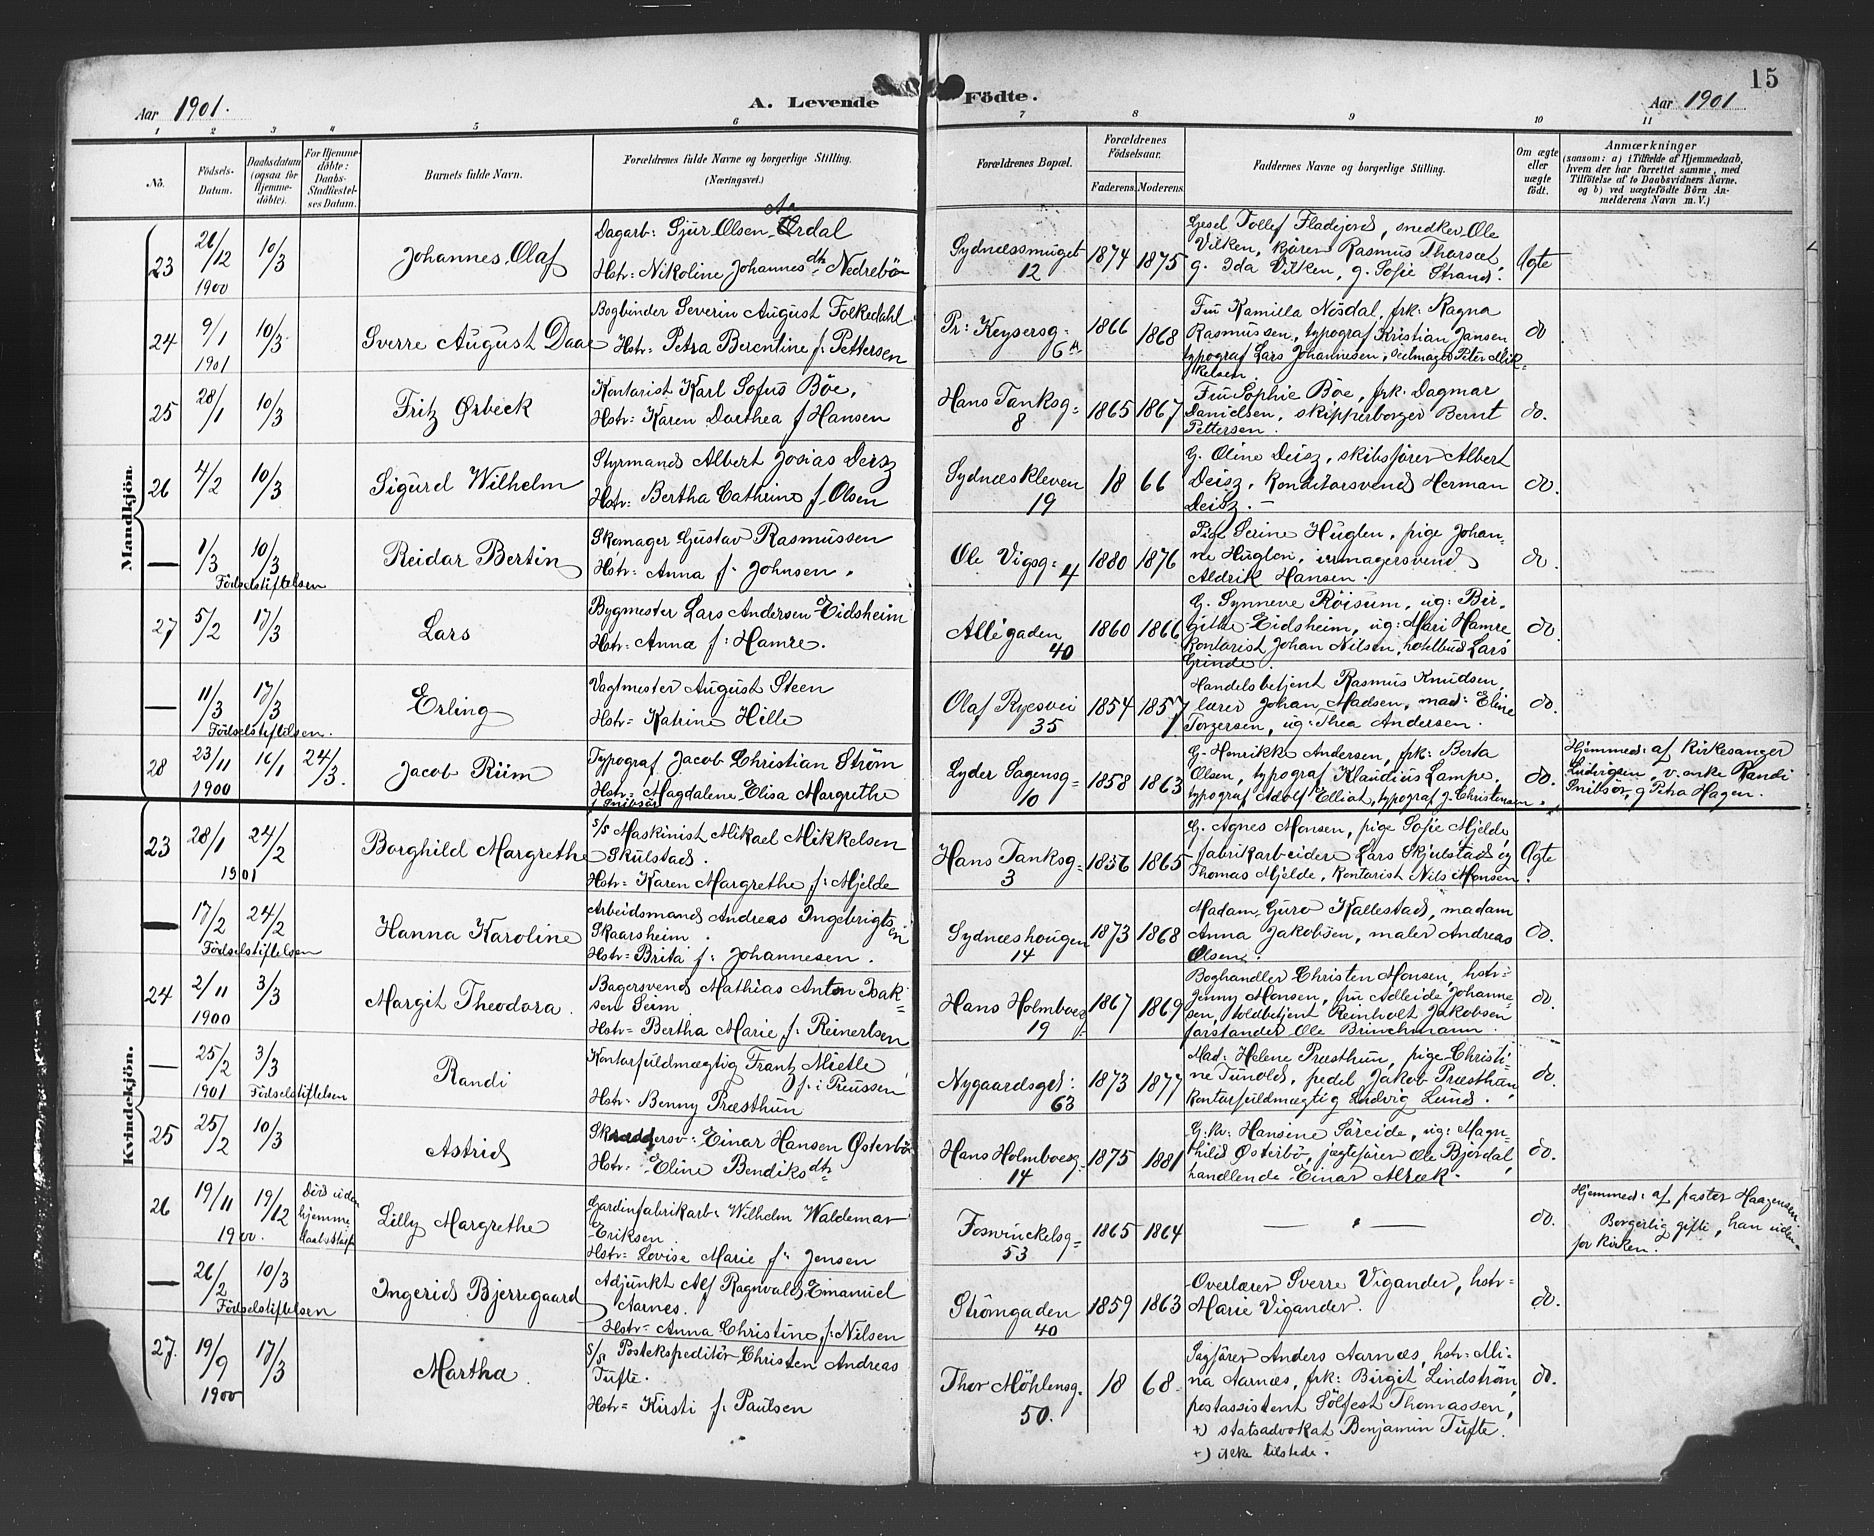 15
Aar 1901.
A. Levende Födte.
Aar 1901
1 2 3 4 5 6 7 8 9 10 11
No.
Födsels-Datum.
Daabsdatum (ogsaa for Hjemme-döbte).
For Hjemme-döbte: Daabs-Stadfæstel-ses Datum.
Barnets fulde Navn.
Forældrenes fulde Navne og borgerlige Stilling.
(Næringsvei.)
Forældrenes Bopæl.
Forældrenes Födselsaar.
Faderens. Moderens.
Faddernes Navne og borgerlige Stilling.
Om ægte eller uægte födt.
Anmærkninger
(saasom: a) i Tilfælde af Hjemmedaab, hvem der har forrettet samme, med Tilföielse af to Daabsvidners Navne, og b) ved uægtefödte Börn An-melderens Navn m.V.)
Mandkjön.
23 26/12 1900 10/3 Johannes Olaf
Dagarb: Sjur Olsen Aa Ørdal
Hstr: Nikoline Johannesdtr Nedrebön
Sydnæssmuget 12 1874 1875
Gesel Tollef Fladejord, snedker Ole
Vilken, kjører Rasmus Tharset,
g. Ida Vilken, g. Sofie Strand.
Ægte
24 9/1 1901 10/3 Sverre August Daae
Bogbinder Severin August Folkedahl
Hstr: Petra Berentine f: Pettersen
Pr: Keysersg: 6A 1866 1868
Fru Kamilla Nosdal, frk: Ragna
Rasmussen, typograf Kristian Jansen
typograf Lars Johannesen, seilmager Peter Mik-
kelsen
do
25 28/1 10/3 Fritz Ørbeck
Kontorist Karl Sofus Böe,
Hstr: Karen Dorthea f Hansen
Hans Tanksg= 8 1865 1867
Fru Sophie Böe, frk: Dagmar
Danielsen, skipperborger Bernt
Pettersen.
do.
26 4/2 10/3 Sigurd Wilhelm
Styrmand Albert Josias Deisz
Hstr: Bertha Cathrine f. Olsen
Sydnæskleven 19 18 66
G. Oline Deisz, skibsfører Albert
Deisz, konditorsvend Herman
Deisz.
do.
— 1/3 10/3 Reidar Bertin
Födselstiftelsen
Skomager Gustav Rasmussen
Hstr: Anna f: Johnsen.
Ole Vigsg: 4 1880 1876
Pige Serine Huglen, pige Johan-
ne Huglen, urmagersvend
Aldrik Hansen.
do.
27 5/2 17/3 Lars
Bygmester Lars Andersen Eidsheim
Hstr: Anna f: Hamre.
Allégaden 40 1860 1866
G. Synneve Röisum, ug: Bir-
gitte Eidsheim, ug: Mari Hamre
kontorist Johan Nilsen, hotelbud Lars
Grinde.
do.
— 11/3 17/3 Erling
Födselstiftelsen.
Vagtmester August Steen
Hstr= Katrine Hille
Olaf Ryesvei 35 1854 1857
Handelsbetjent Rasmus Knudsen,
lærer Johan Madsen, mad: Eline
Torgersen, ug: Thea Andersen.
do.
28 23/11 1900 16/1 24/3. Jacob Riim
Typograf Jacob Christian Strøm
Hstr= Magdalene Elisa Margrethe
f Snibsör
Lyder Sagensg= 10 1858 1863
G. Henrikke Andersen, frk: Berta
Olsen, typograf Klaudius Lampe,
typograf Adolf Elliot, typograf J. Christensen.
do.
Hjemmed: af kirkesanger
Ludvigsen, v. enke Randi
Snilsør, g Petra Hagen.
Kvindekjön.
23 28/1 1901 24/2 Borghild Margrethe
s/s Maskinist Mikael Mikkelsen
Skulstad.
Hstr= Karen Margrethe f: Mjelde
Hans Tanksg= 3 1856 1865
G. Agnes Monsen, pige Sofie Mjelde,
fabrikarbeidere Lars Skjulstad og
Thomas Mjelde, kontorist Nils Monsen.
Ægte
— 17/2 24/2 Hanna Karoline
Födselstiftelsen
Arbeidsmand Andreas Ingebrigtsen
Skaarsheim.
Hstr= Brita f: Johannesen.
Sydnæshougen 14 1873 1868
Madam Guro Kallestad, madam
Anna Jakobsen, maler Andreas
Olsen.
do.
24 2/11 1900 3/3 Margit Theodora.
Bagersvend Mathias Anton Isak-
sen Seim
Hstr= Bertha Marie f: Reinertsen
Hans Holmboesg= 19 1867 1869
Boghandler Christen Monsen, hstr=
Jenny Monsen, fru Adleide Johanne-
sen, toldbetjent Reinholt Jakobsen
forstander Ole Brinchmann.
do.
— 25/2 1901 3/3 Randi
Födselstiftelsen
Kontorfuldmægtig Frantz Mietle,
f: i Preussen
Hstr= Benny Præsthun
Nygaardsgd: 63 1873 1877
Mad: Helene Præsthun, pige Christi-
ne Tunold, pedel Jakob Præsthun,
kontorfuldmægtig Ludvig Lund.
do.
25 25/2 10/3 Astrid
Skræddersv: Einar Hansen Østerbö
Hstr: Eline Bendiksdtr
Hans Holmboesg. 14 1875 1881
G.kv: Hansine Söreide, ug: Magn-
hild Østerbö, jægtefører Ole Bjórdal,
handlende Einar Alræk.
do.
26 19/11 1900 19/12 Död uden hjemme-daabsstadf. Lilly Margrethe
Gardinfabrikarb: Wilhelm Waldemar
Eriksen.
Hstr= Lovise Marie f: Jensen
Foswinckelsg= 53 1865 1864
— " —
do.
Hjemmed: af pastor Haagensen.
Borgerlig gifte, han uden-
for kirken.
— 26/2 10/3 Ingerid Bjerregaard
Födselstiftelsen
Adjunkt Alf Ragnvald Emanuel
Aarnes.
Hstr= Anna Christine f: Nilsen
Strömgaden 40 1859 1863
Overlærer Sverre Vigander, hstr=
Marie Vigander.
do.
27. 19/9 1900 17/3 Martha.
s/s Postekspeditör Christen Andreas
Tufte.
Hstr= Kirsti f: Paulsen
Thor Möhlensg. 50. 18 68.
Sagförer Anders Aarnæs, hstr= Mi-
na Aarnæs, frk: Birgit Lindström,
postassistent Sölfest Thomassen,
+) statsadvokat Benjamin Tufte.
+) ikke tilstede.
do.